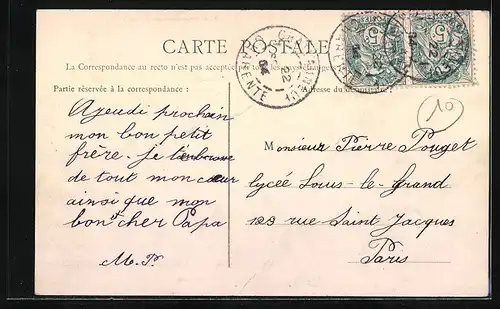 CARTE POSTALE
La Correspondance au recto n'est pas acceptée par tous les pays
Partie réservée à la correspondance :
Adresse du destinataire :
A jeudi prochain
mon bon petit
frère. Je t'embrasse
de tout mon cœur
ainsi que mon
bon et cher Papa
M. P.
Monsieur Pierre Pouget
lycée Louis-le-Grand
123 rue Saint Jacques
Paris
10
CHARENTE
22
04
5
5